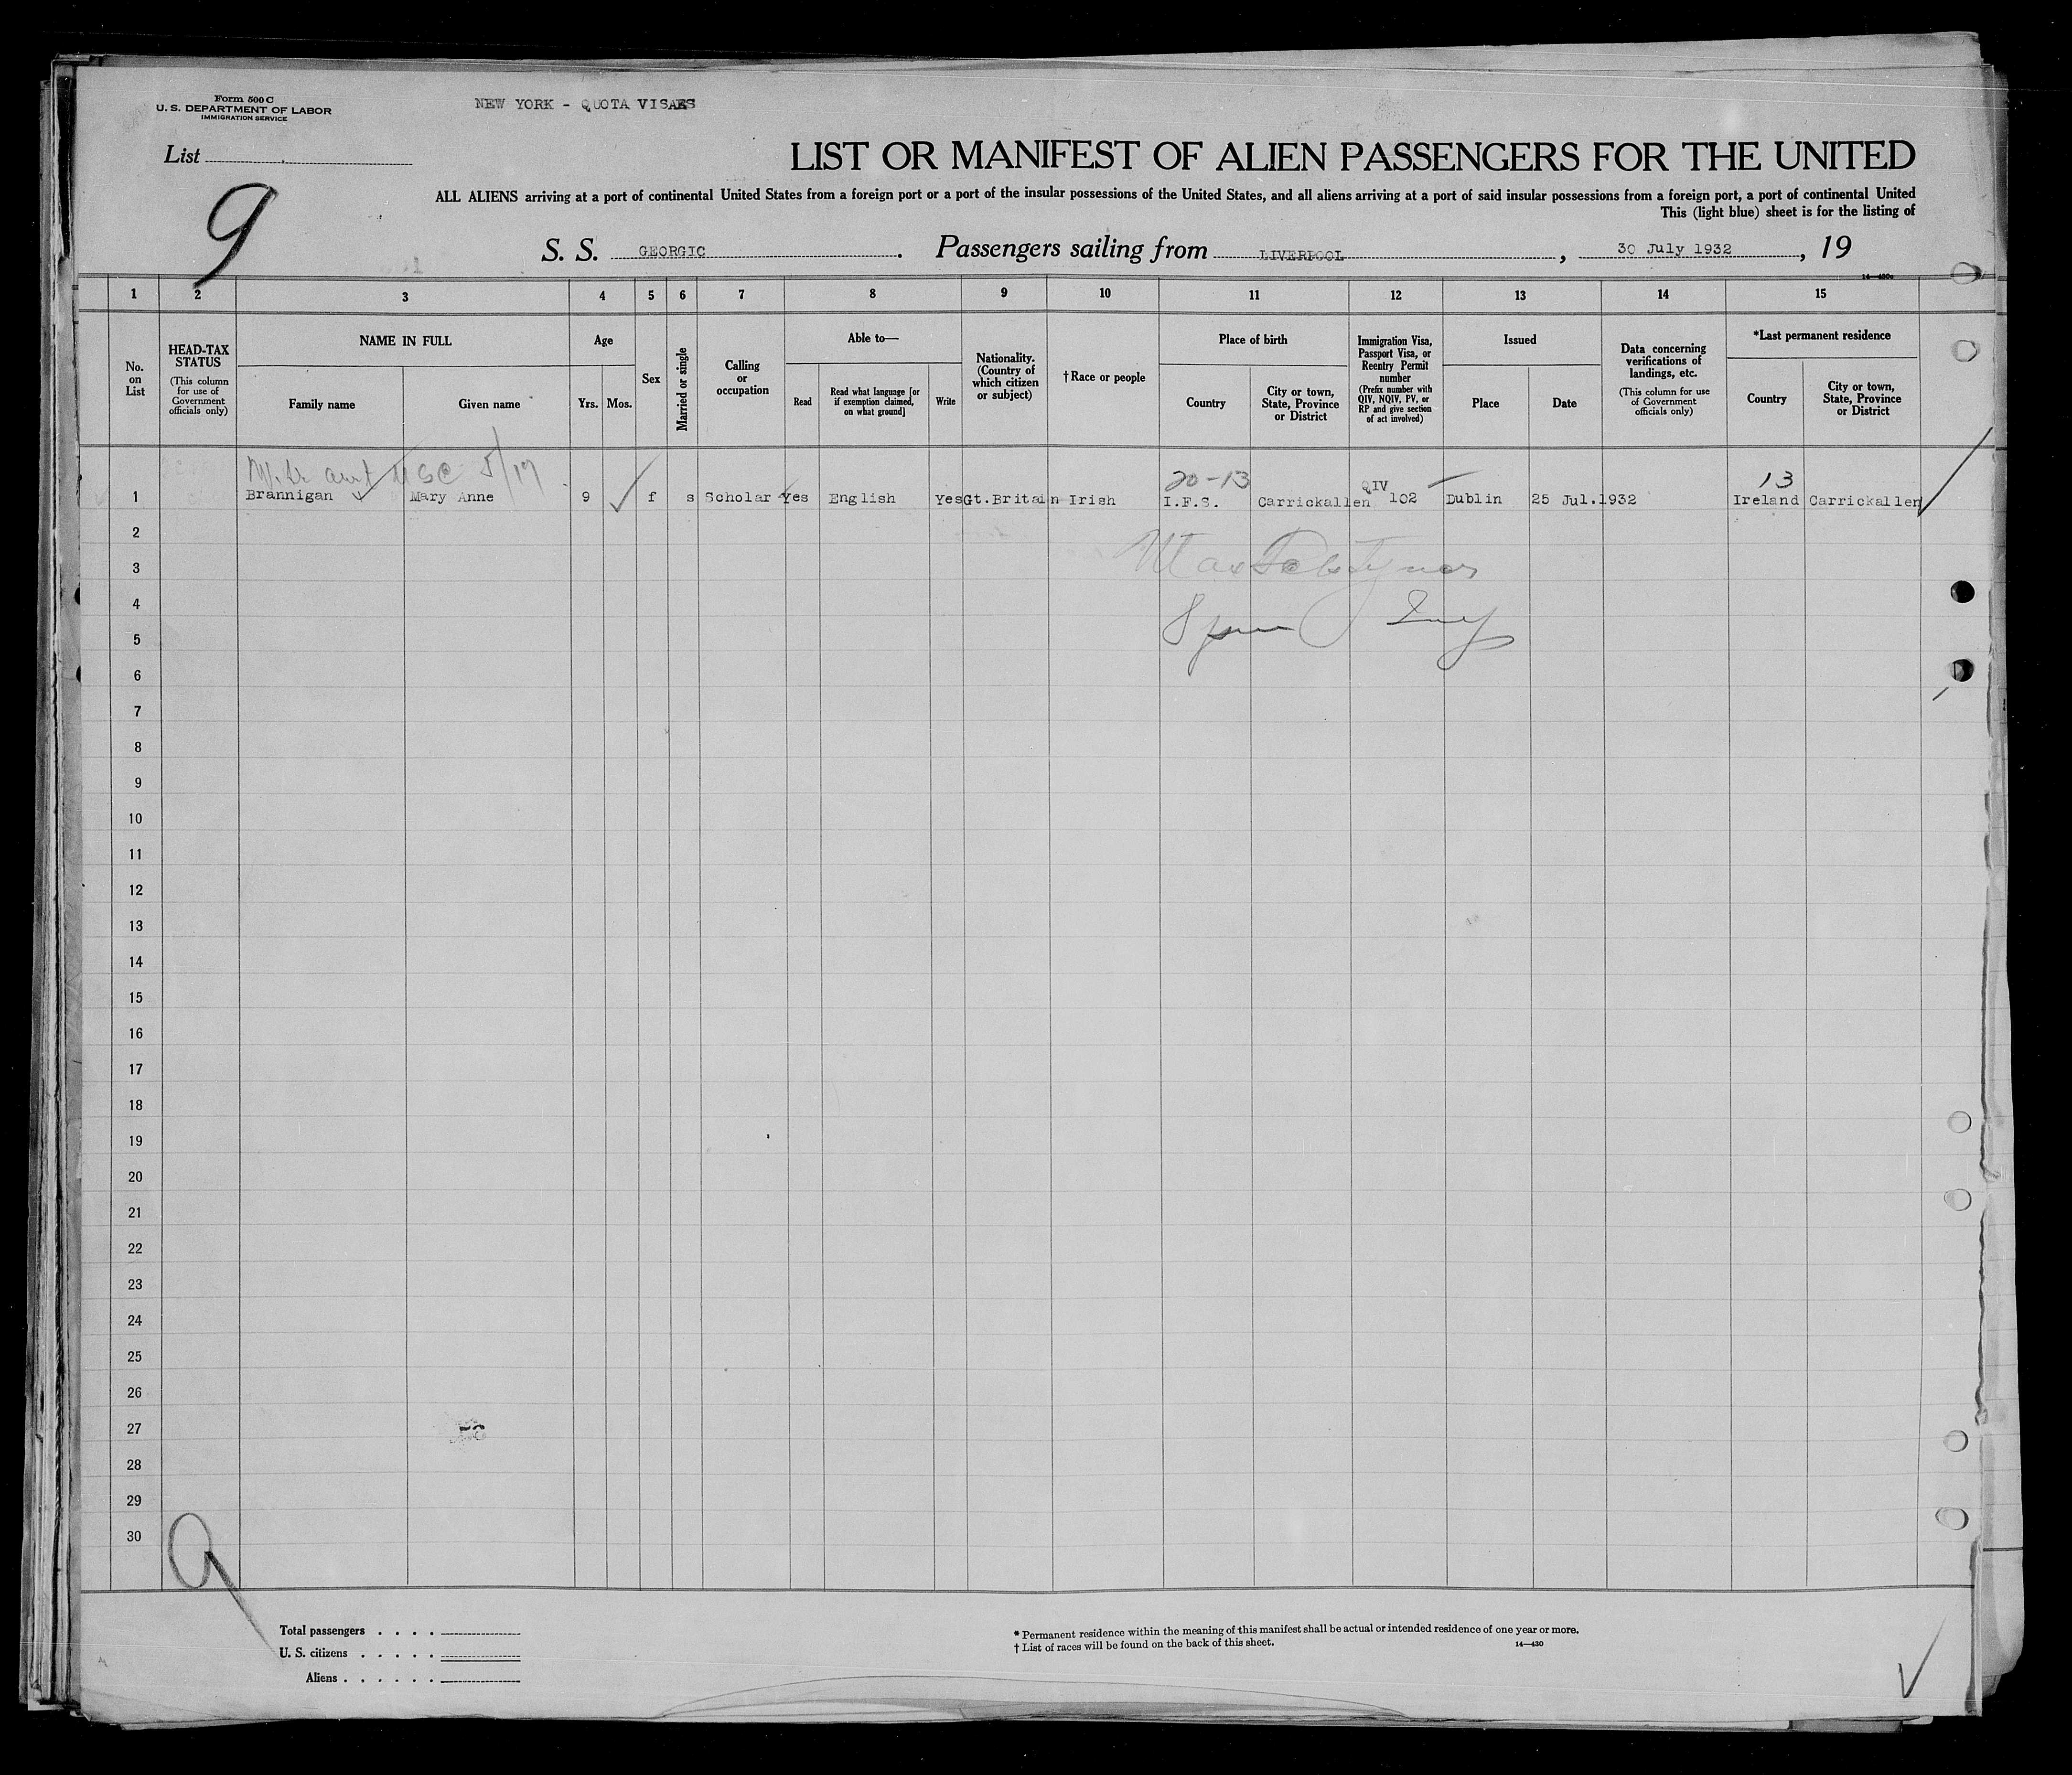 Form 500 C
U. S. DEPARTMENT OF LABOR
IMMIGRATION SERVICE
NEW YORK - QUOTA VISAES
List
9
LIST OR MANIFEST OF ALIEN PASSENGERS FOR THE UNITED
ALL ALIENS arriving at a port of continental United States from a foreign port or a port of the insular possessions of the United States, and all aliens arriving at a port of said insular possessions from a foreign port, a port of continental United
This (light blue) sheet is for the listing of
S. S. GEORGIC. Passengers sailing from LIVERPOOL, 30 July 1932, 19
14—430c
1 2 3 4 5 6 7 8 9 10 11 12 13 14 15
No. on List
HEAD-TAX STATUS
(This column for use of Government officials only)
NAME IN FULL
Family name
Given name
Age
Yrs.
Mos.
Sex
Married or single
Calling or occupation
Able to—
Read
Read what language [or if exemption claimed, on what ground]
Write
Nationality. (Country of which citizen or subject)
†Race or people
Place of birth
Country
City or town, State, Province or District
Immigration Visa, Passport Visa, or Reentry Permit number
(Prefix number with QIV, NQIV, PV, or RP and give section of act involved)
Issued
Place
Date
Data concerning verifications of landings, etc.
(This column for use of Government officials only)
*Last permanent residence
Country
City or town, State, Province or District
5/17
20-13
QIV
13
1 Brannigan Mary Anne 9 f s Scholar Yes English Yes Gt.Britain Irish I.F.S. Carrickallen 102 Dublin 25 Jul.1932 Ireland Carrickallen
2
3
4
5
6
7
8
9
10
11
12
13
14
15
16
17
18
19
20
21
22
23
24
25
26
27
28
29
30
9
Total passengers . . . .
U. S. citizens . . . . .
Aliens . . . . . .
* Permanent residence within the meaning of this manifest shall be actual or intended residence of one year or more.
† List of races will be found on the back of this sheet.
14—430